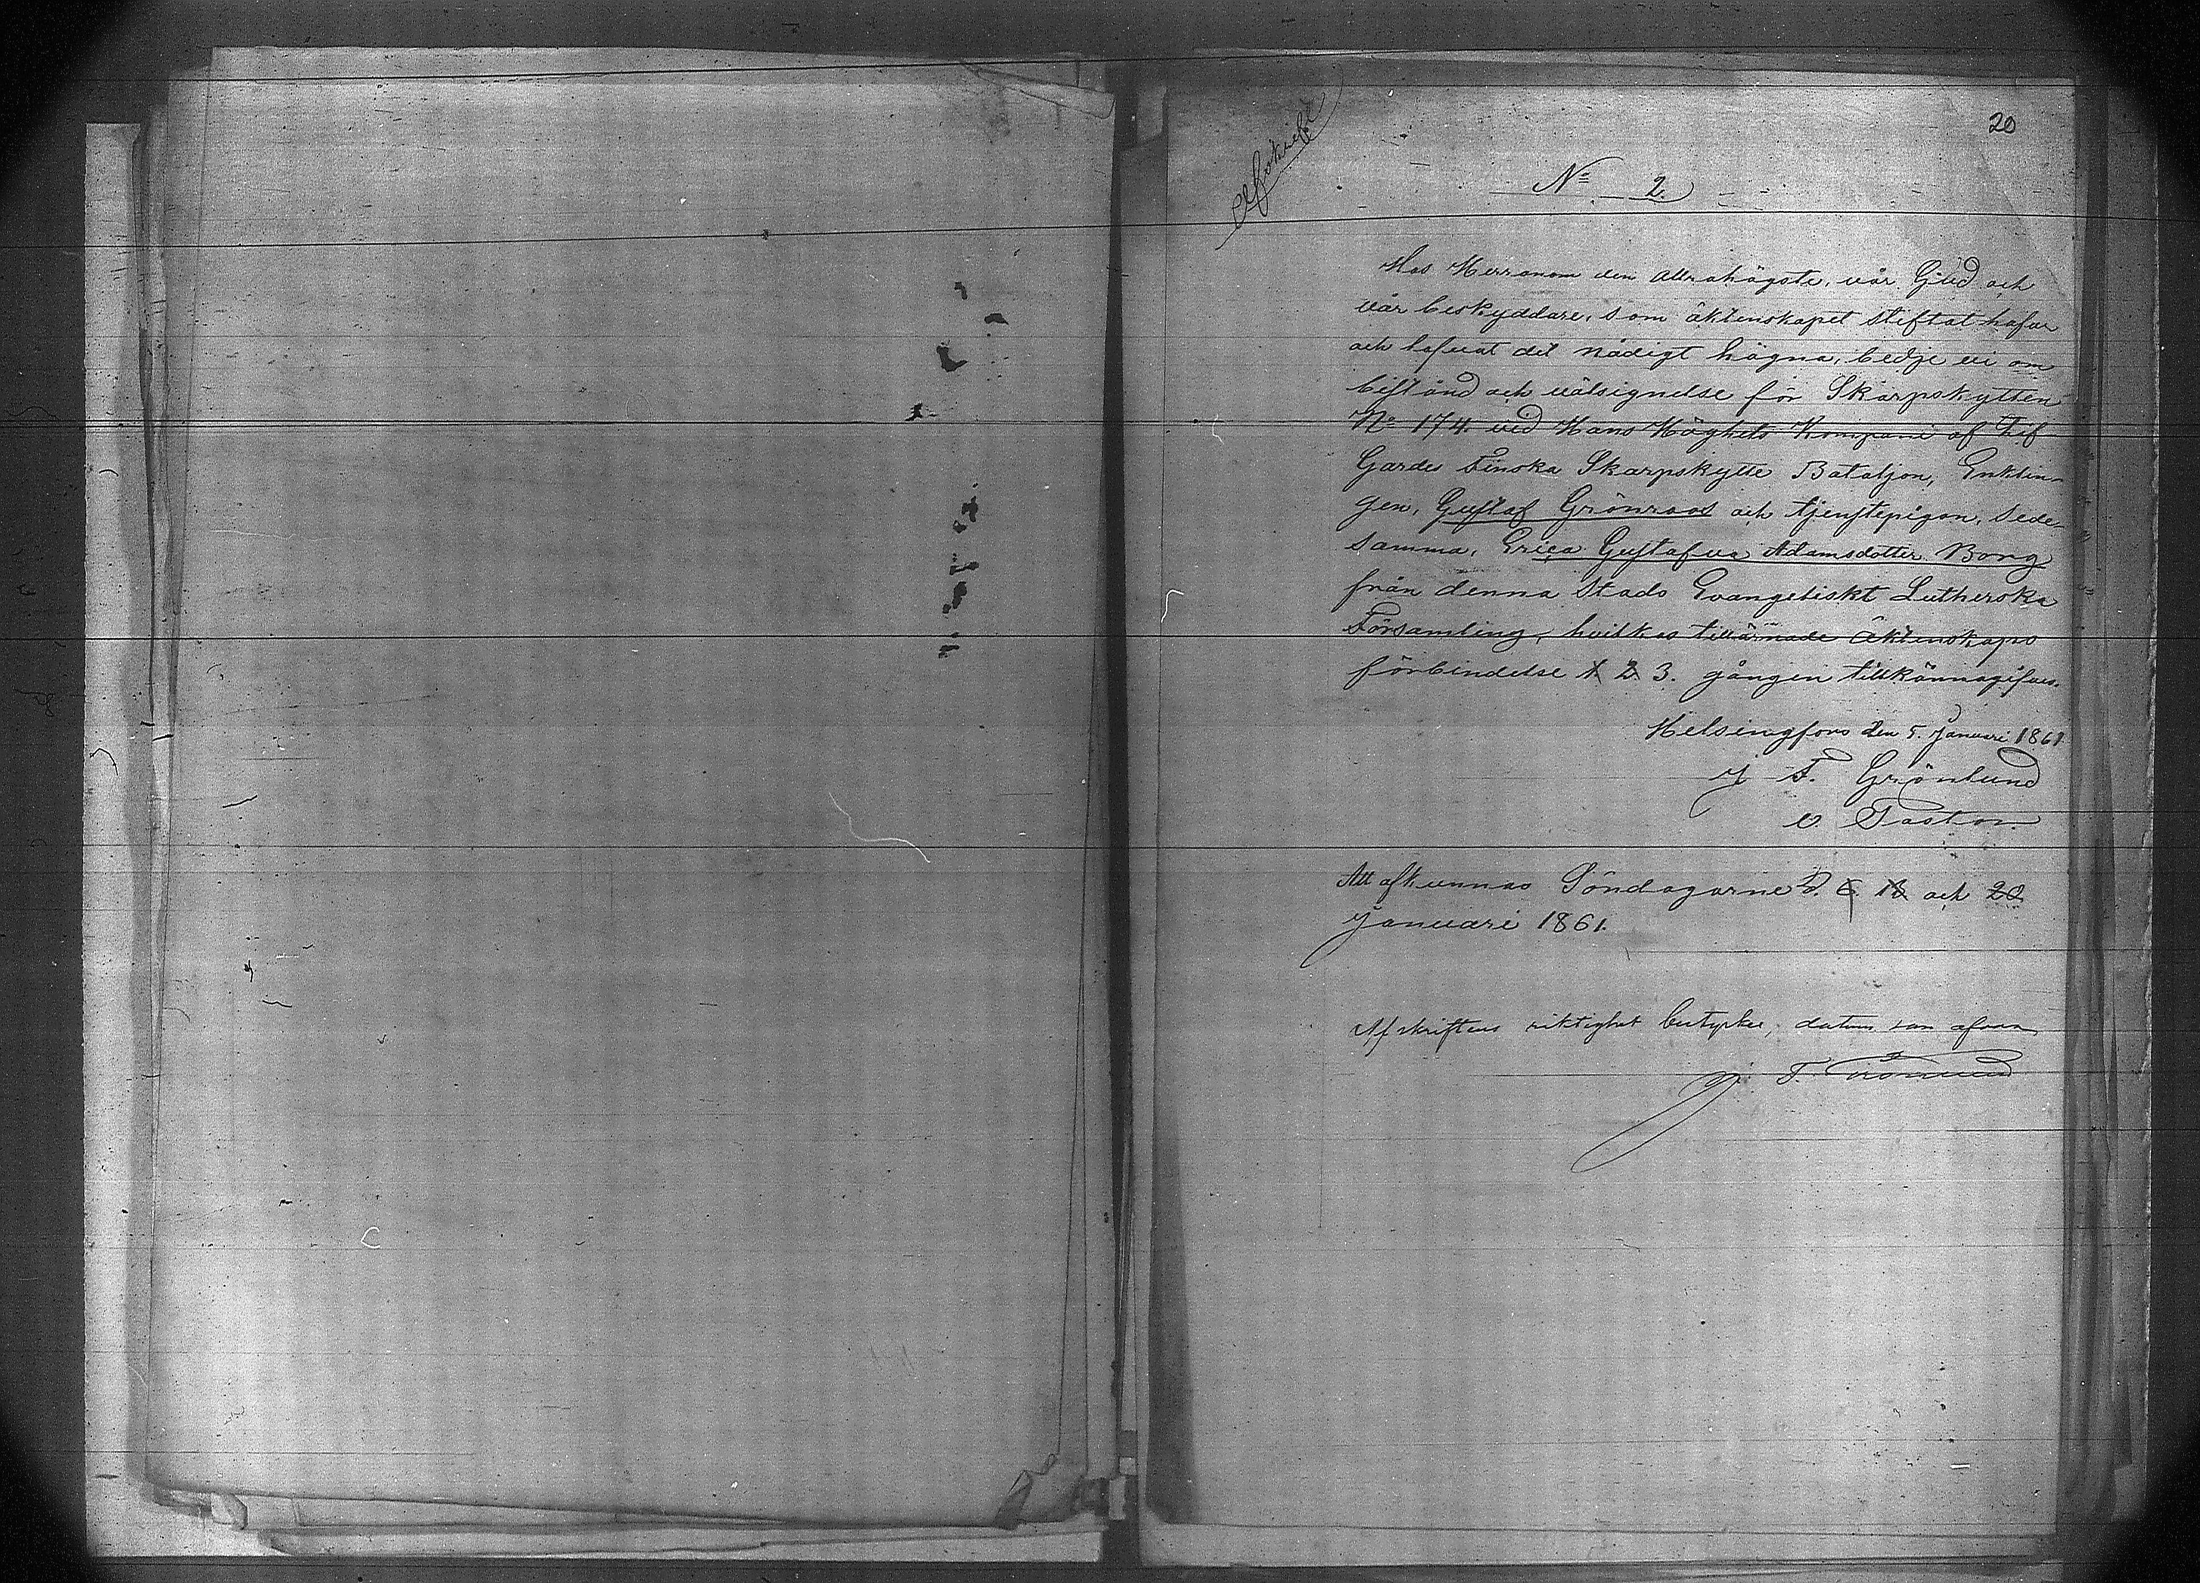 20
Afskrift
No 2.
Hos Herranom den allrahögste, vår Gud och
vår beskyddare, som äktenskapet stiftat hafver
och lofvat det nådigt hägna, bedje vi om
bistånd och välsignelse för Skarpskytten
No 174. vid Hans Höghets Kompani af Lif
Gardes Finska Skarpskytte Bataljon, Enklin-
gen, Gustaf Grönroos och tjenstepigan, sede-
samma, Erica Gustafva Adamsdotter Borg
från denna Stads Evangeliskt Lutherska
Församling, hvilkas tillärnade äktenskaps
förbindelse 1 2 3. gången tillkännagifves.
Helsingfors den 5. Januari 1861.
J F. Grönlund
v. Pastor.
Att afkunnas Söndagarne d. 6. 13 och 20
Januari 1861.
Afskriftens riktighet betyrker, datum som ofvan
J. F. Grönlund